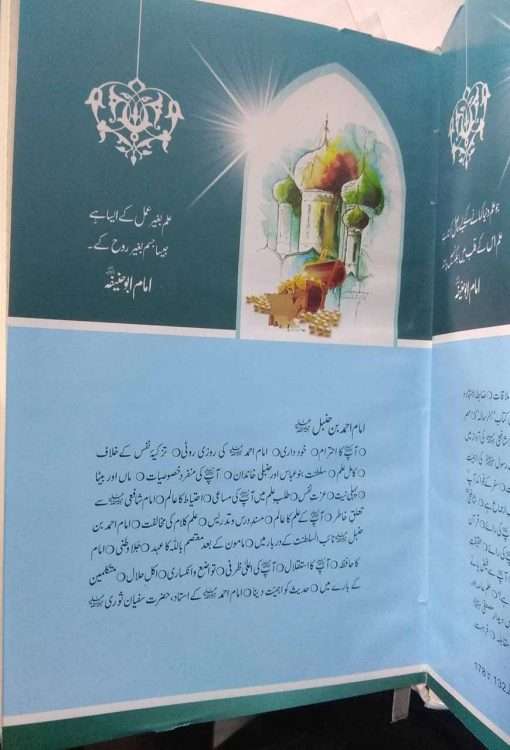 علم بغیر عمل کے ایسا ہے
جیسا جسم بغیر روح کے۔
امام ابو حنیفہؒ
امام ابو حنیفہؒ
امام احمد بن حنبلؒ
○ آپؒ کا احترام ○ خودداری ○ امام احمدؒ کی روزی روٹی ○ تزکیۂ نفس کے خلاف
○ کامل علم ○ سلطنت بنو عباس اور حنبلی خاندان ○ آپؒ کی منفرد خصوصیات ○ ماں اور بیٹا
○ پہلی نیت ○ عزت نفس ○ طلب علم میں آپؒ کی مساعی ○ احتیاط کا عالم ○ امام شافعیؒ سے
تعلق خاطر ○ آپؒ کے علم کا عالم ○ مسند درس و تدریس ○ علم کلام کی مخالفت ○ امام احمد بن
حنبلؒ نائب السلطنت کے دربار میں ○ مامون کے بعد معتصم باللہ کا عہد ○ جلاوطنی ○ امام
کا حافظہ ○ آپؒ کا استقلال ○ آپؒ کی اعلیٰ ظرفی ○ تواضع و انکساری ○ اکل حلال ○ متکلمین
کے بارے میں ○ حدیث کو اہمیت دینا ○ امام احمدؒ کے استاد، حضرت سفیان ثوریؒ